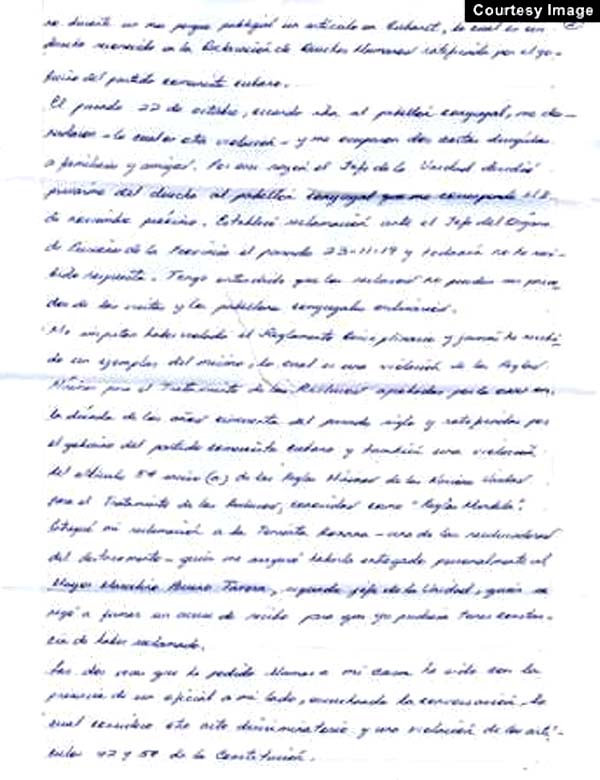 Courtesy Image
no durante un mes porque publiqué un artículo en Cubanet, lo cual es un
derecho reconocido en la Declaración de Derechos Humanos ratificada por el go-
bierno del partido comunista cubano.
El pasado 22 de octubre, cuando iba al pabellón conyugal, me des-
nudaron - lo cual es otra violación - y me ocuparon dos cartas dirigidas
a familiares y amigos. Por esa razón el Jefe de la Unidad decidió
privarme del derecho al pabellón conyugal que me corresponde el 8
de noviembre próximo. Establecí reclamación ante el Jefe del Organo
de Prisiones de la Provincia el pasado 23-11-19 y todavía no he reci-
bido respuesta. Tengo entendido que los reclusos no pueden ser priva-
dos de las visitas y los pabellones conyugales ordinarios.
Me imputan haber violado el Reglamento Disciplinario y jamás he recibi-
do un ejemplar del mismo, lo cual es una violación de las Reglas
Mínimas para el Tratamiento de los Reclusos aprobadas por la ONU en
la década de los años cincuenta del pasado siglo y ratificadas por
el gobierno del partido comunista cubano y también una violación
del artículo 54 inciso (a) de las Reglas Mínimas de las Naciones Unidas
para el Tratamiento de los Reclusos, conocidas como "Reglas Mandela".
Entregué mi reclamación a la Teniente Roxana - una de las reeducadoras
del destacamento - quien me aseguró haberla entregado personalmente al
Mayor, segundo jefe de la Unidad, quien se
negó a firmar un acuse de recibo para que yo pudiera tener constan-
cia de haber reclamado.
Las dos veces que he pedido llamar a mi casa ha sido con la
presencia de un oficial a mi lado, escuchando la conversación, lo
cual considero otro acto discriminatorio y una violación de los artí-
culos 42 y 50 de la Constitución.